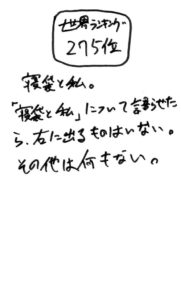 世界ランキング
275位
寝袋と私。
「寝袋と私」について語らせた
ら、右に出るものはいない。
その他は何もない。